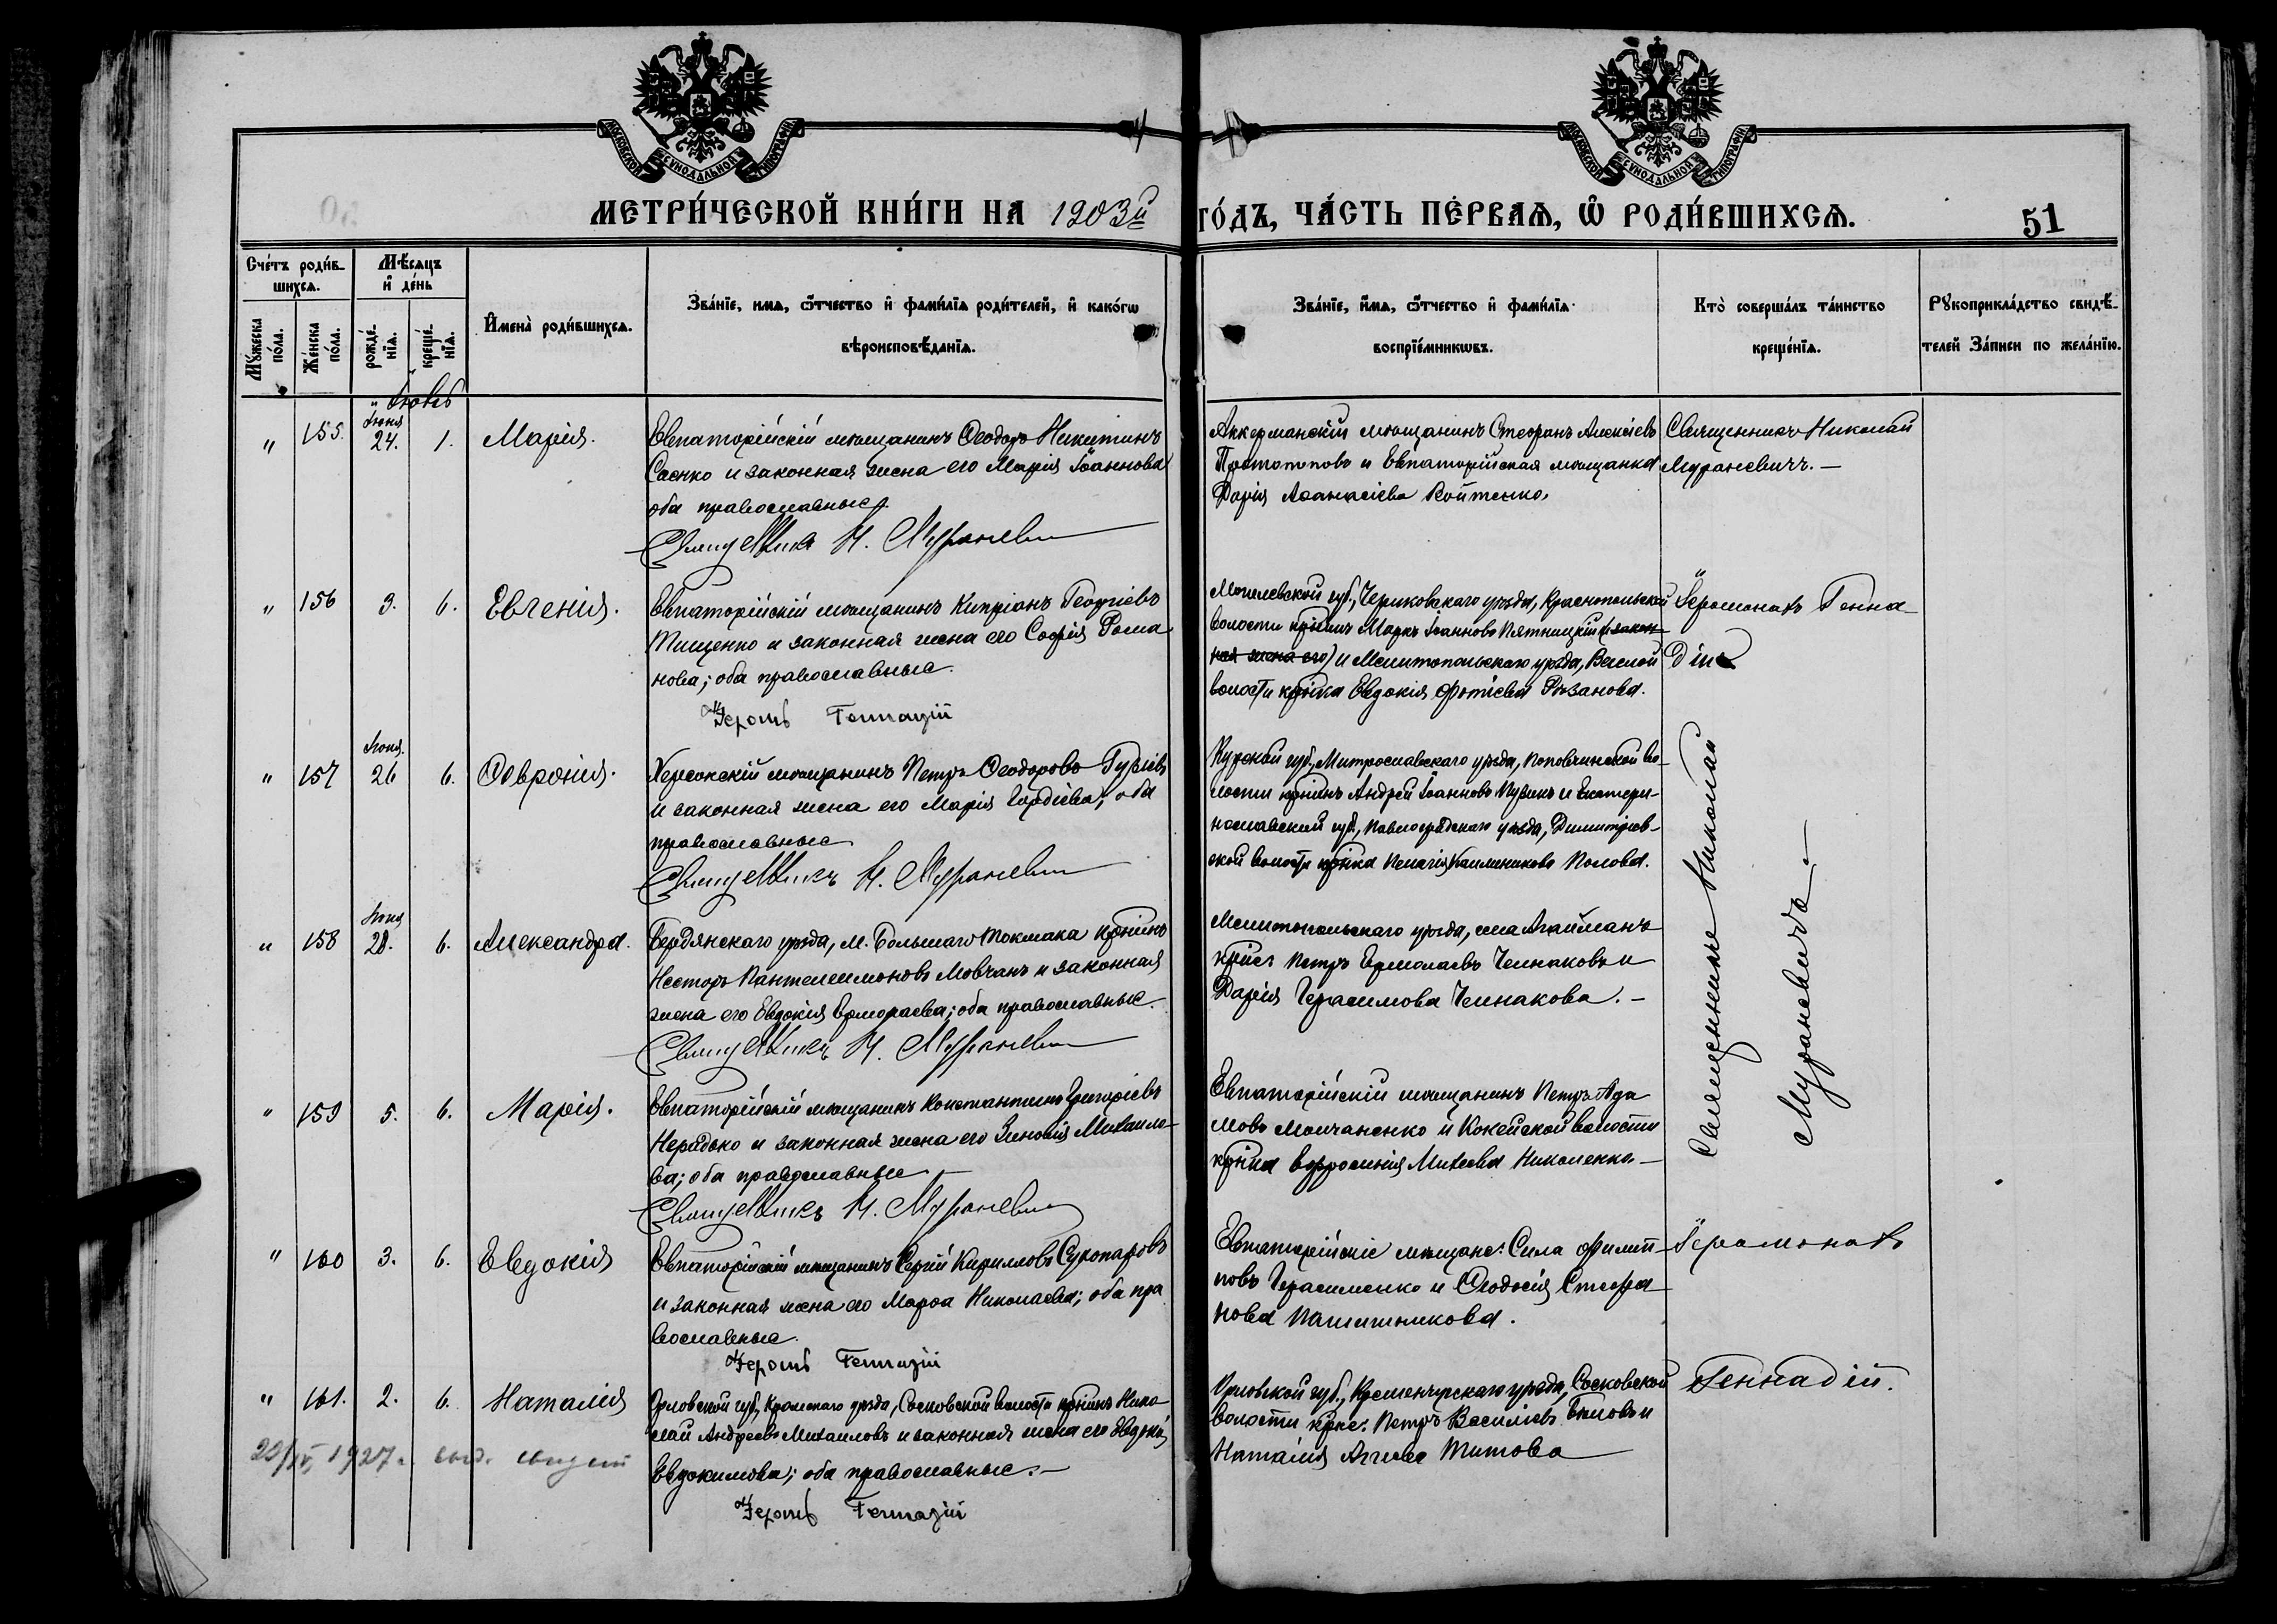 МОСКОВСКОЙ СУНОДАЛЬНОЙ ТИПОГРАФІИ
МОСКОВСКОЙ СУНОДАЛЬНОЙ ТИПОГРАФІИ
МЕТРИ́ЧЕСКОЙ КНИ́ГИ НА 1903й ГО́ДЪ, ЧА́СТЬ ПЕ́РВАѦ, Ѡ РОДИ́ВШИХСѦ.
51
Сче́тъ роди́в-
шихсѧ.
Мꙋжеска
по́ла.
Же́нска
по́ла.
Мѣ́сѧцъ
и҆ де́нь
рожде́-
нїѧ.
креще́-
нїѧ.
И҆мена̀ роди́вшихсѧ.
Зва́нїе, имѧ, ѻ҆́тчество и҆ фами́лїѧ роди́телей, и҆ како́гѡ
вѣроисповѣ́данїѧ.
Зва́нїе, и҆́мѧ, ѻ҆́тчество и҆ фами́лїѧ
воспрїе́мникѡвъ.
Кто̀ соверша́лъ та́инство
креще́нїѧ.
Рꙋкоприкла́дство свидѣ́-
телей За́писи по жела́нїю.
"
155.
Іюня
24.
1.
Марія.
Евпаторійскій мѣщанинъ Ѳеодоръ Никитинъ
Саенко и законная жена его Марія Іоаннова
оба православные.
Священникъ Н. Мураневич
Аккерманскій мѣщанинъ Стефанъ Алексіевъ
Протопоповъ и Евпаторійская мѣщанка
Дарія Аѳанасіева Войтенко.
Священникъ Николай
Мураневичъ.—
"
156
3.
6.
Евгенія.
Евпаторійскій мѣщанинъ Кипріанъ Георгіевъ
Тищенко и законная жена его Софія Рома
нова; оба православные.
Іеромъ Геннадій
Могилевской губ., Чериковскаго уѣзда, Краснопольской
волости кр̃нинъ Маркъ Іоанновъ Пятницкій (и закон-
ная жена его) и Мелитопольскаго уѣзда, Веселой
волости кр̃нка Евдокія Фотіева Рязанова.
Іеромонахъ Генна-
дій
"
157
Іюня.
26
6.
Ѳеврonія.
Херсонскій мѣщанинъ Петръ Ѳеодоровъ Гусіевъ
и законная жена его Марія Гордіева; оба
православные
Священникъ Н. Мураневич
Курской губ., Митрославскаго уѣзда, Поповчинской во-
лости кр̃нинъ Андрей Іоанновъ Пузикъ и Екатери-
нославской губ., Павлоградскаго уѣзда, Димитріев-
ской волости кр̃нка Пелагія Каллиникова Попова.
Священникъ Николай
Мураневичъ.—
"
158
Іюня
28.
6.
Александра.
Бердянскаго уѣзда, м. Большаго Токмака кр̃нинъ
Несторъ Пантелеимоновъ Мовчанъ и законная
жена его Евдокія Ермолаева; оба православные.
Священникъ Н. Мураневич
Мелитопольскаго уѣзда, села Агайманъ
кр̃не: Петръ Ермолаевъ Челнаковъ и
Дарія Герасимова Челнакова.—
"
159
5.
6.
Марія.
Евпаторійскій мѣщанинъ Константинъ Григоріевъ
Нерадько и законная жена его Зиновія Михаило-
ва; оба православные.—
Священникъ Н. Мураневич
Евпаторійскій мѣщанинъ Петръ Ада
мовъ Молчаненко и Кокейской волости
кр̃нка Евфросинія Михеева Николенко.—
"
160
3.
6.
Евдокія
Евпаторійскій мѣщанинъ Сергій Кирилловъ Сухопаровъ
и законная жена его Марѳа Николаева; оба пра
вославные.
Іеромъ Геннадій
Евпаторійскіе мѣщане: Сила Филип-
повъ Герасименко и Ѳеодосія Стефа
нова Пашитникова.
Іеромонахъ
"
161.
2.
6.
Наталія
Орловской губ., Кромскаго уѣзда, Сосковской волости кр̃нинъ Нико-
лай Андреевъ Михаиловъ и законная жена его Евдокія
Евдокимова; оба православные.—
Іеромъ Геннадій
Орловской губ., Кременчугскаго уѣзда, Сосковской
волости кр̃не: Петръ Василіевъ Титовъ и
Наталія Титова
Геннадій.
22/IV, 1927 г. выд.